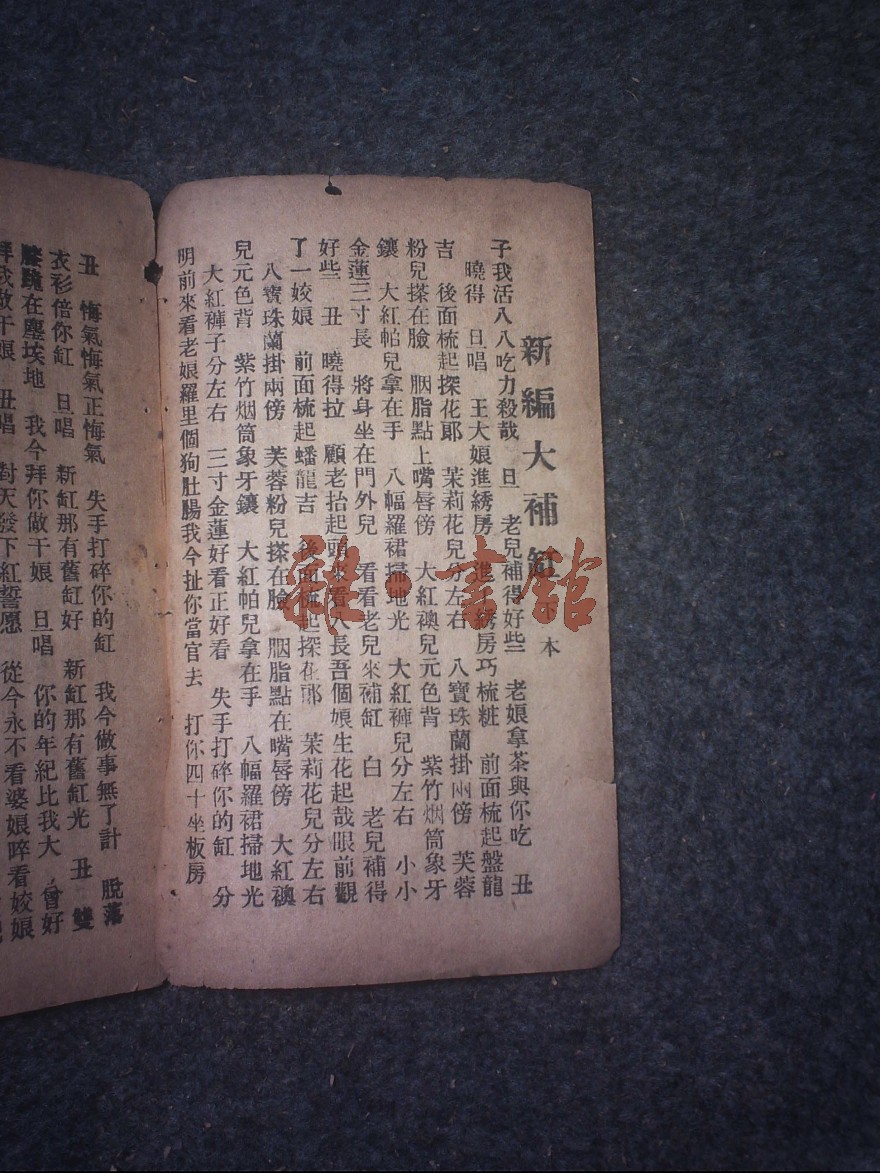 新編大補缸 下本
子我活入八吃力殺哉 旦 老兒補得好些 老娘拿茶與你吃 丑
曉得 旦唱 王大娘進綉房 進了綉房巧梳粧 前面梳起盤龍
吉 後面梳起探花郎 茉莉花兒分左右 八寶珠蘭掛兩傍 芙蓉
粉兒搽在臉 胭脂點上嘴唇傍 大紅襖兒元色背 紫竹烟筒象牙
鑲 大紅帕兒拿在手 八幅羅裙掃地光 大紅褲兒分左右 小小
金蓮三寸長 將身坐在門外兒 看看老兒來補缸 白 老兒補得
好些 丑 曉得拉 顧老抬起頭來看 長吾個娘生花起哉眼前觀
了一姣娘 前面梳起蟠龍吉 後面梳起探花郎 茉莉花兒分左右
八寶珠蘭掛兩傍 芙蓉粉兒搽在臉 胭脂點在嘴唇傍 大紅襖
兒元色背 紫竹烟筒象牙鑲 大紅帕兒拿在手 八幅羅裙掃地光
大紅褲子分左右 三寸金蓮好看正好看 失手打碎你的缸 分
明前來看老娘羅里個狗肚腸我今扯你當官去 打你四十坐板房
丑 悔氣悔氣正悔氣 失手打碎你的缸 我今做事無了計 脫落
衣衫倍你缸 旦唱 新缸那有舊缸好 新缸那有舊缸光 丑 雙
膝跪在塵埃地 我今拜你做干娘 旦唱 你的年紀比我大 曾好
拜我做干娘 丑唱 對天發下紅誓愿 從今永不看婆娘啐看姣娘
雜·書館